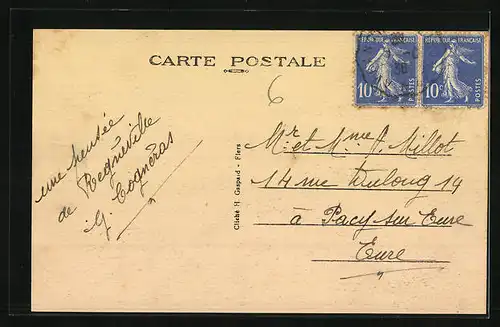 CARTE POSTALE
RÉPUBLIQUE FRANÇAISE
10c POSTES
RÉPUBLIQUE FRANÇAISE
10c POSTES
6
une pensée
de Regnéville
G.
Cliché H. Gaspard - Flers
Mr et Mme P. Millot
14 rue Dulong 14
à Pacy sur Eure
Eure